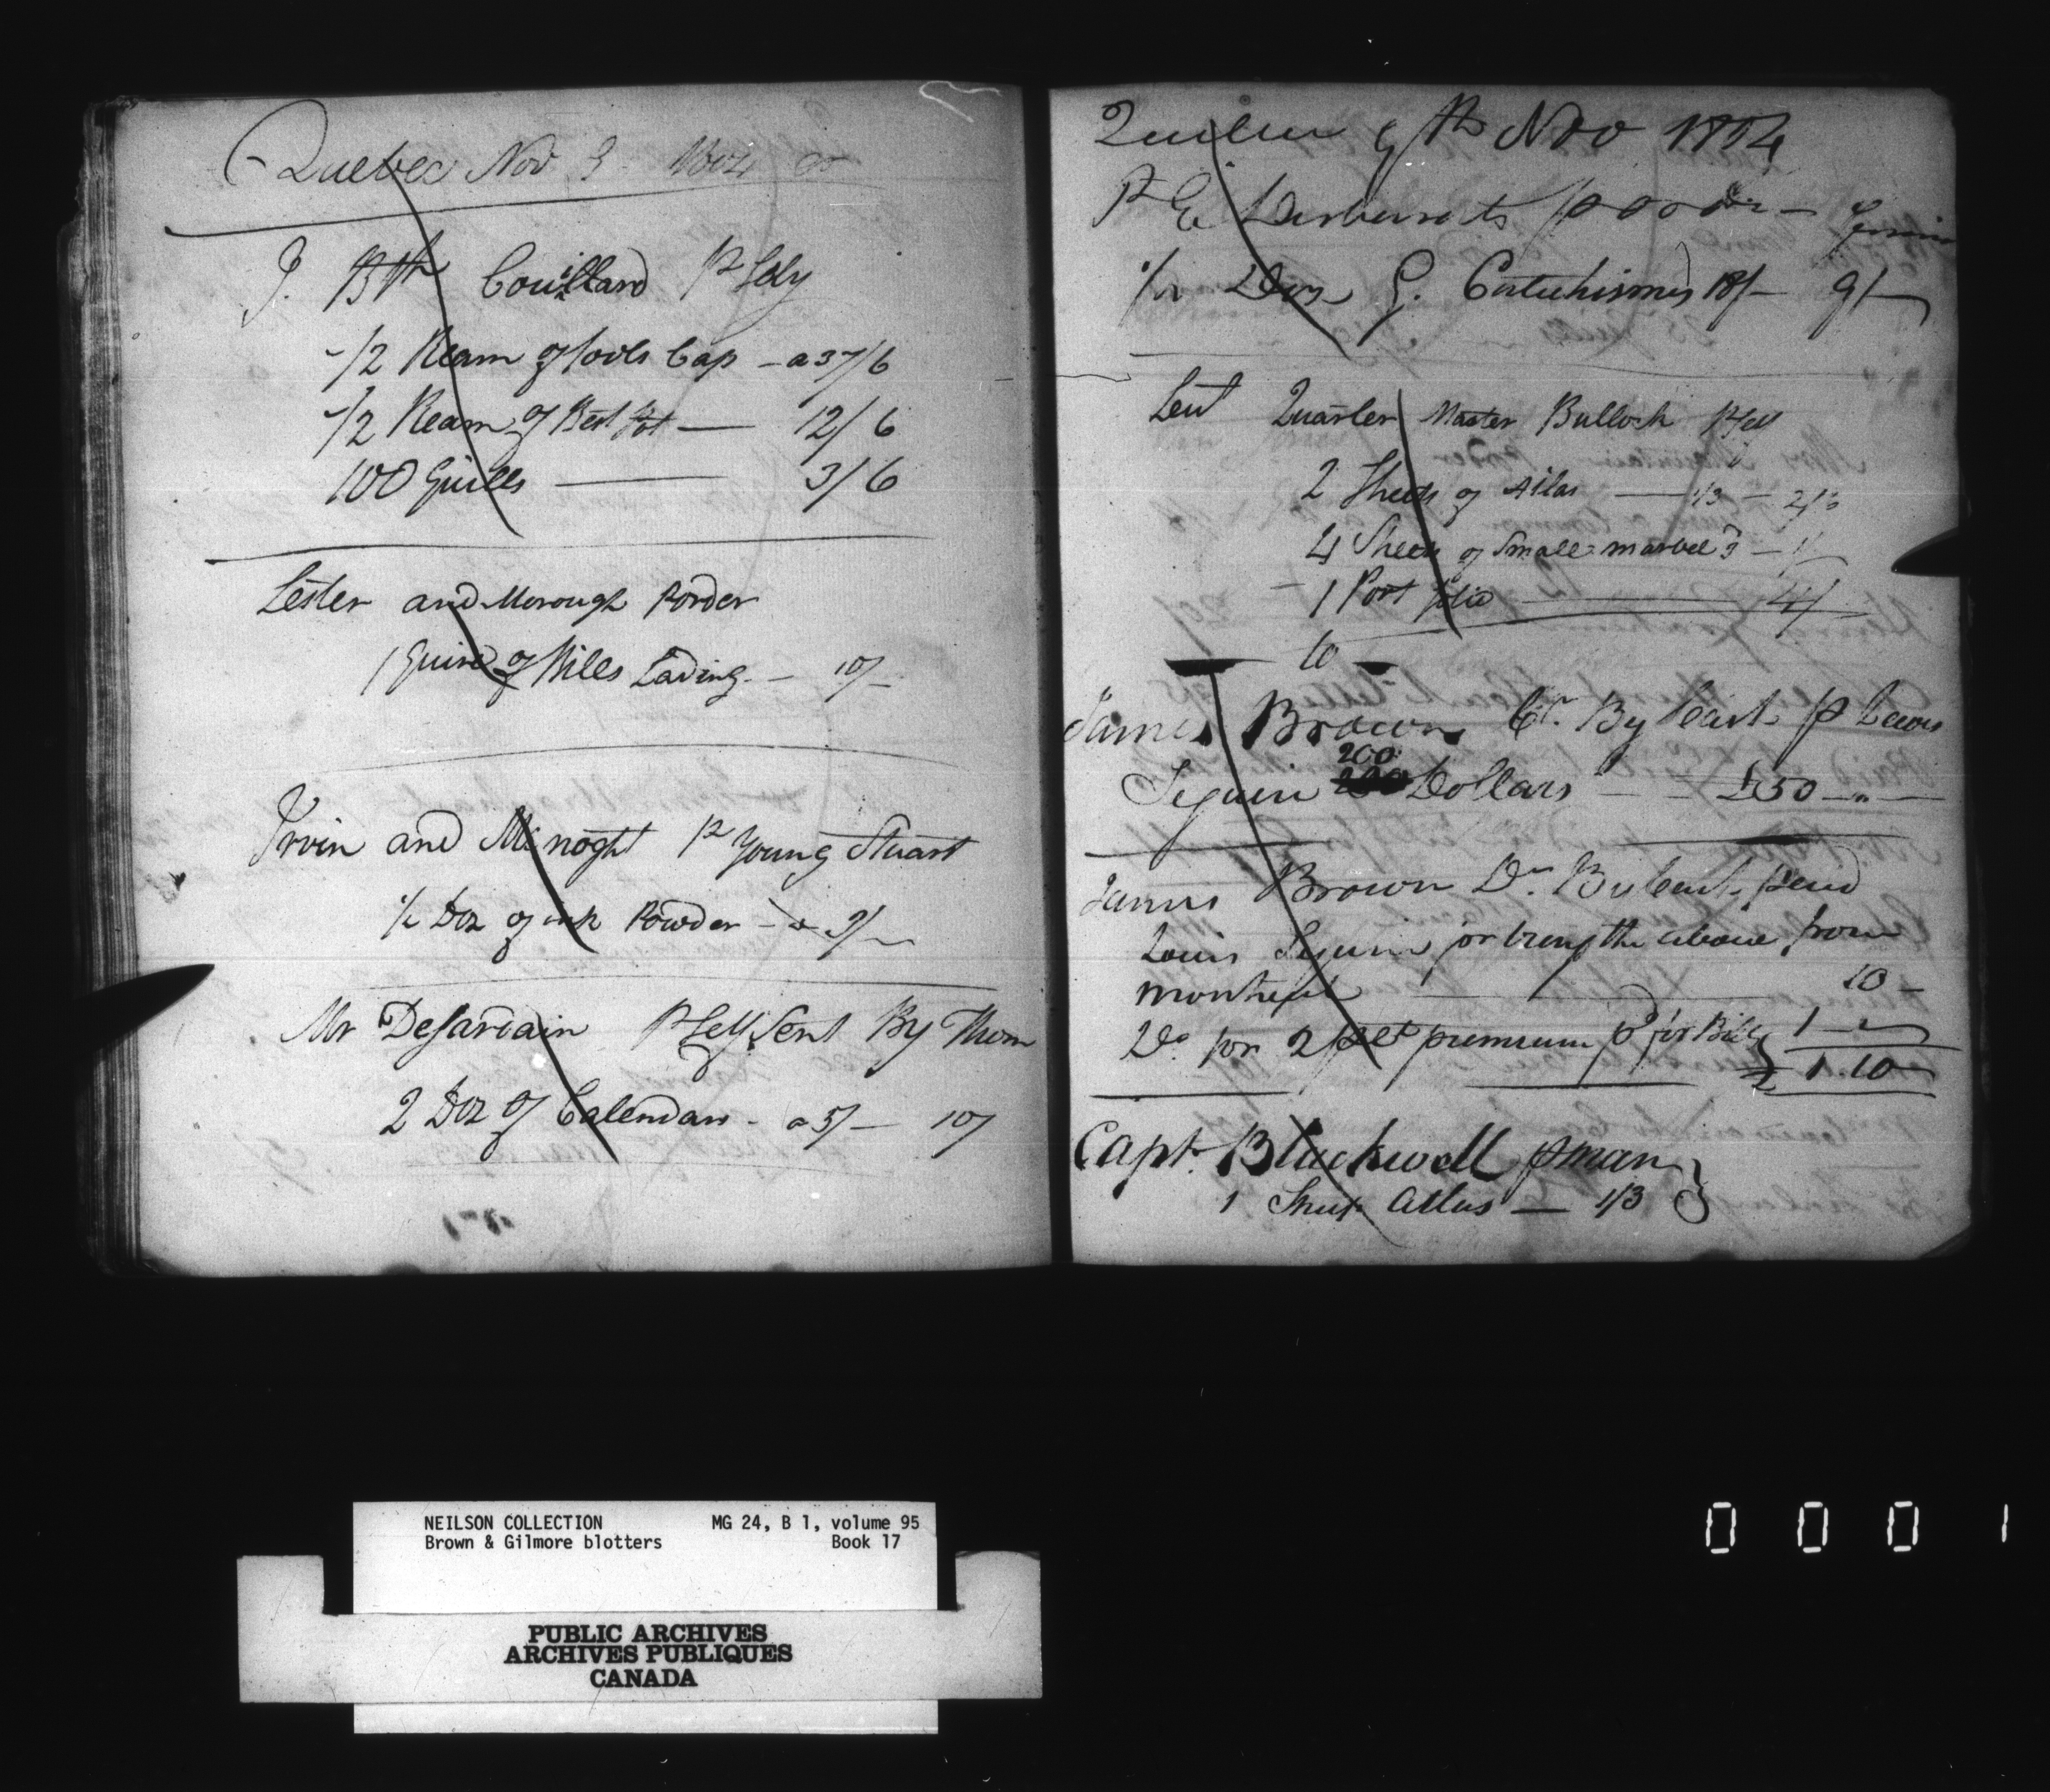 Quebec Nov 9 1804
J. Bth Couillard P Self
1/2 Ream of fools Cap - a 37/6
1/2 Ream of Best Pot — 12/6
100 Quills — 3/6
Lester and Morough Porder
1 Quire of Bills Lading - 10/-
Irvin and Mc noght P Young Stuart
1/2 Doz of ink Powder - a 9/-
Mr Desardain P Self Sent By Thom
2 Doz of Calendars - a 5/- 10/
Quebec 9th Nov 1804
P E Desbarats p order -
1/2 Doz G. Catechismes 18/- 9/-
Leut Quarter Master Bullock P Self
2 Sheets of Atlas — 1/3 - 2/6
4 Sheets of Small marbel'd - 1/
- 1 Port folio — 4/
10
James Brown Cr. By Cash p Louis
Seguin 200 Dollars - - £50 - " -
James Brown Dr. By Cash paid
Louis Seguin for bring the above from
Montreal — 10 -
Do. for 2 p Ct premium p for Bills } 1 -
1.10
Capt. Blackwell p man }
1 Sheet Atlas — 1/3
NEILSON COLLECTION MG 24, B 1, volume 95
Brown & Gilmore blotters Book 17
PUBLIC ARCHIVES
ARCHIVES PUBLIQUES
CANADA
0 0 0 1